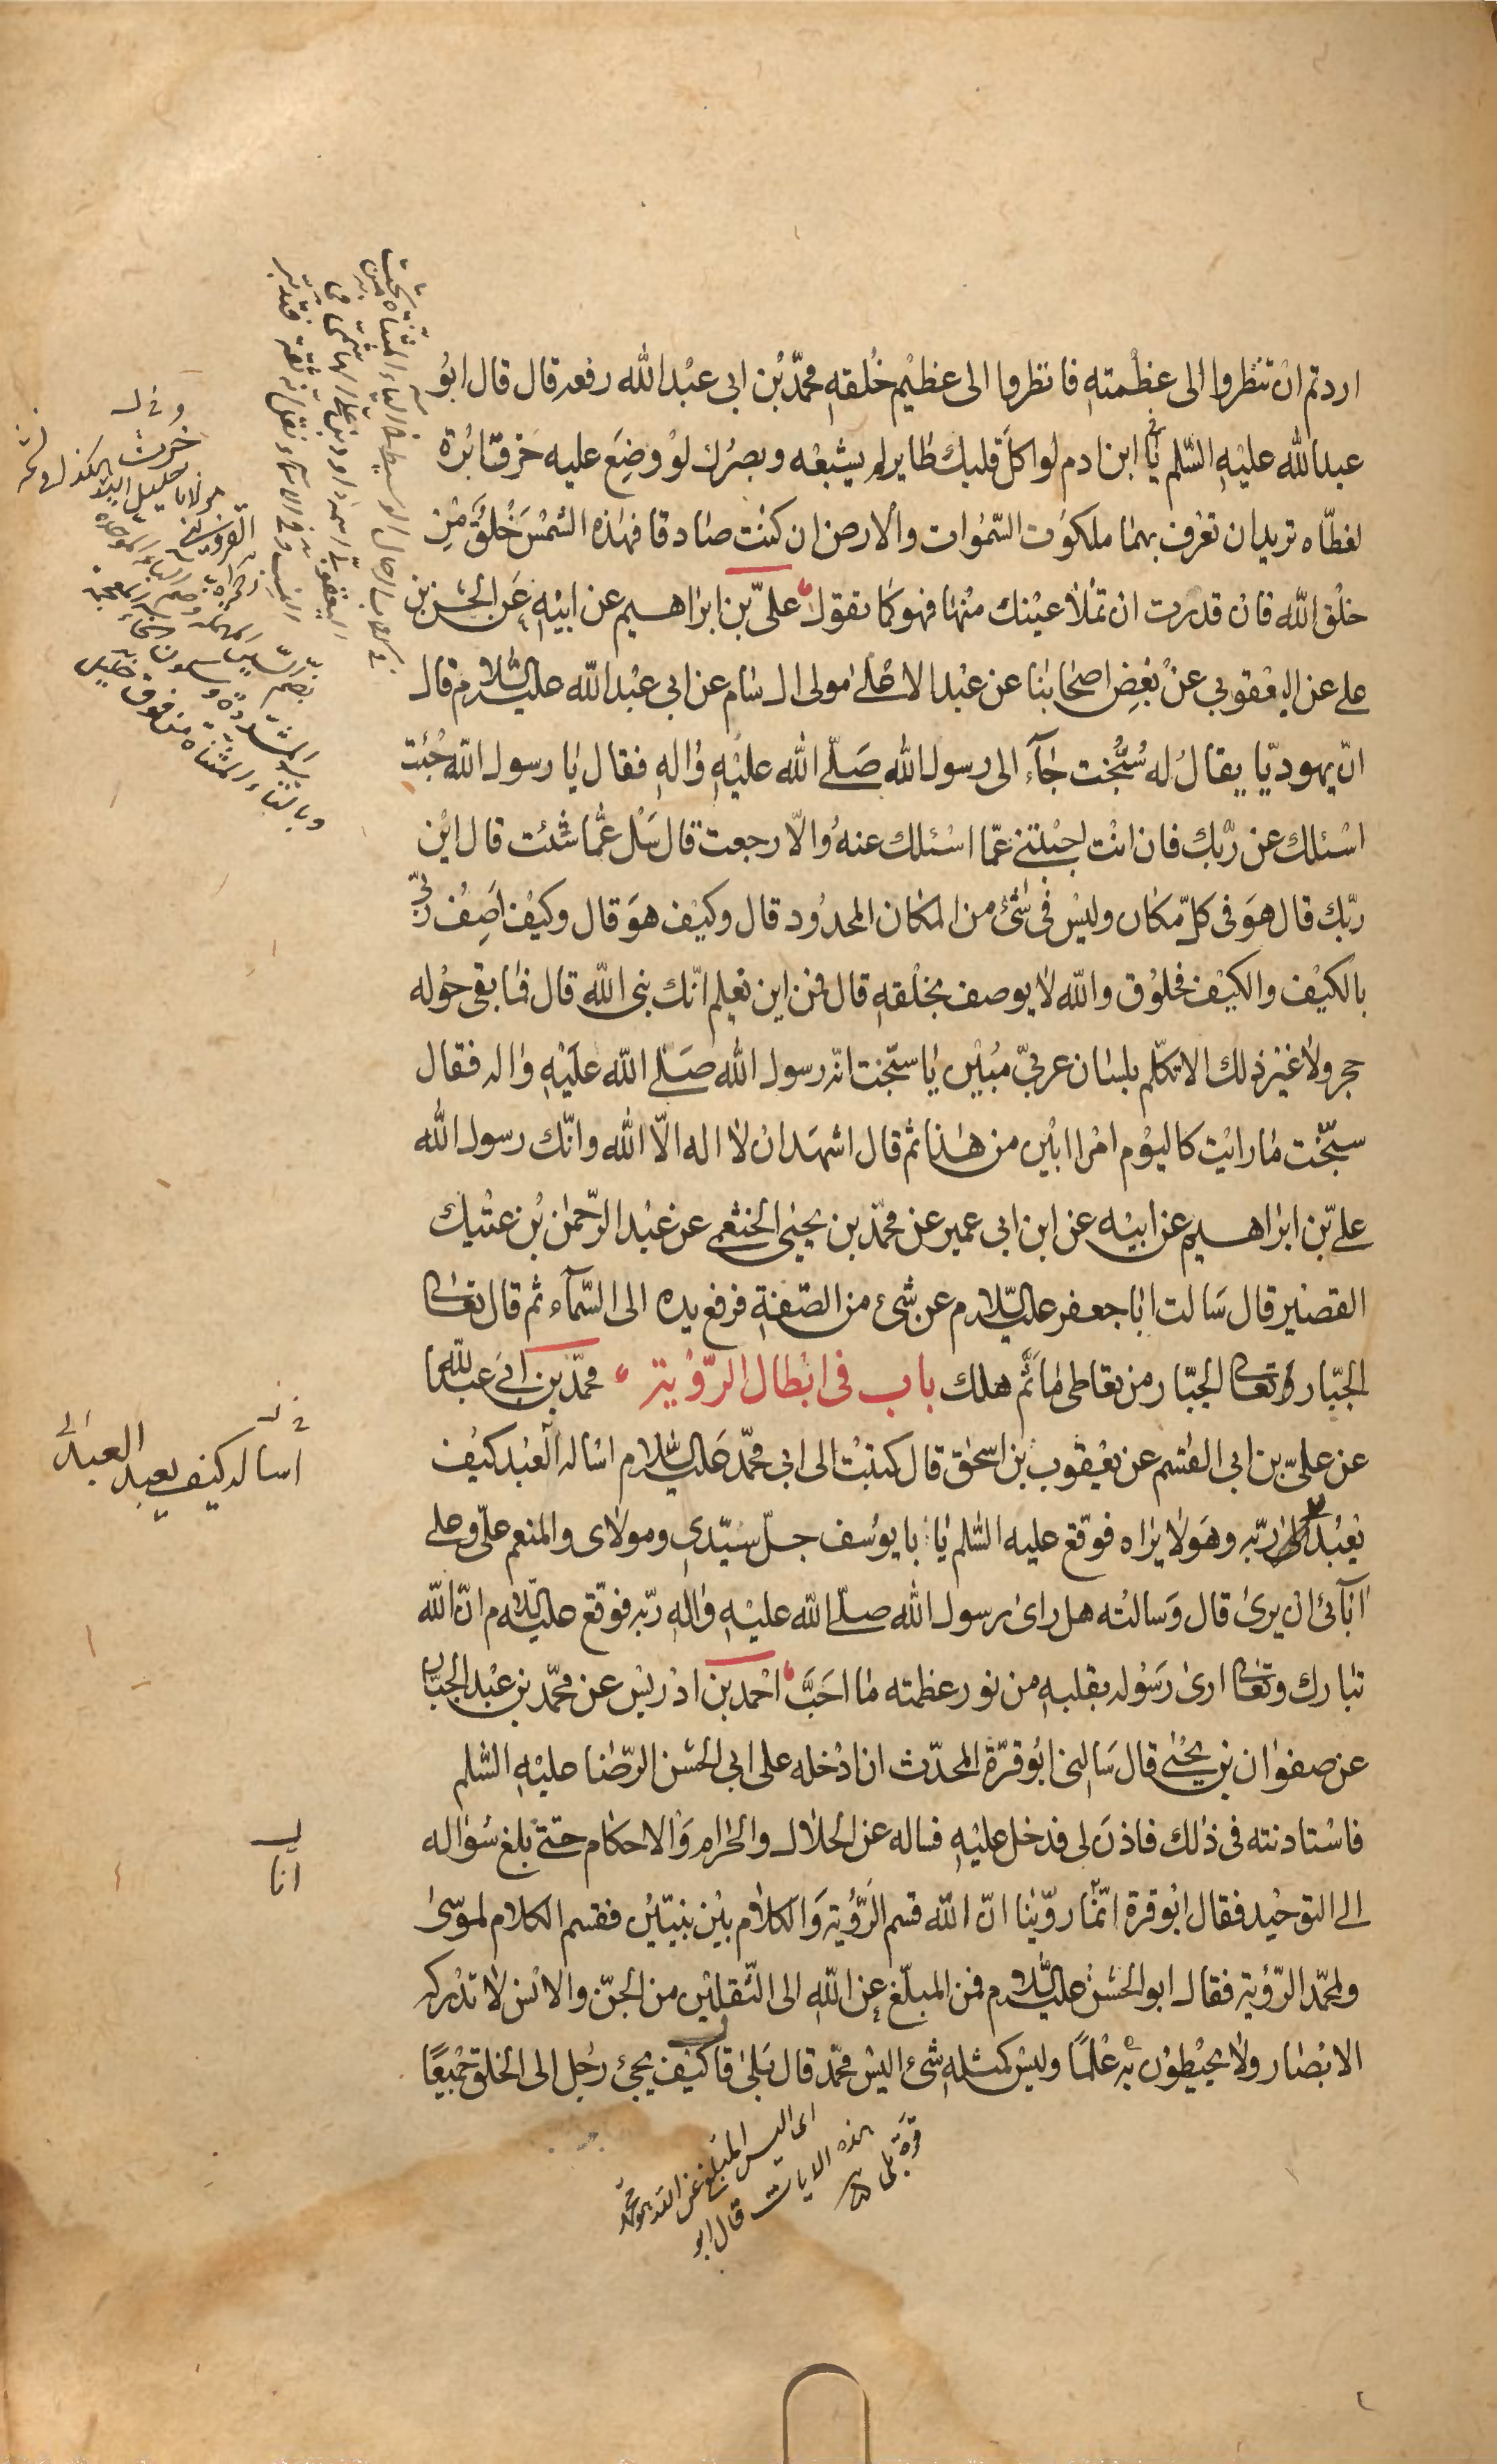 اردتم ان تنظروا الى عظمته فانظروا الى عظيم خلقه محمد بن ابى عبد الله رفعه قال قال ابو
عبد الله عليه السلم يا ابن ادم لو اكل قلبك طاير لم يشبعه وبصرك لو وضع عليه خرق ابرة
لغطاه تريد ان تعرف بهما ملكوت السموات والارض ان كنت صادقا فهذه الشمس خلق من
خلق الله فان قدرت ان تملأ عينك منها فهو كما تقول علي بن ابراهيم عن ابيه عن الحسن بن
على عن اليعقوبى عن بعض اصحابنا عن عبد الاعلى مولى ال سام عن ابى عبد الله عليه السلام قال
ان يهوديا يقال له سبخت جاء الى رسول الله صلى الله عليه واله فقال يا رسول الله جئت
اسئلك عن ربك فان انت اجبتنى عما اسئلك عنه والا رجعت قال سل عما شئت قال اين
ربك قال هو فى كل مكان وليس فى شئ من المكان المحدود قال وكيف هو قال وكيف اصف ربى
بالكيف والكيف مخلوق والله لا يوصف بخلقه قال فمن اين نعلم انك نبى الله قال فما بقى حوله
حجر ولا غير ذلك الا تكلم بلسان عربى مبين يا سبخت انه رسول الله صلى الله عليه واله فقال
سبخت ما رايت كاليوم امرا ابين من هذا ثم قال اشهد ان لا اله الا الله وانك رسول الله
على بن ابراهيم عن ابيه عن ابن ابى عمير عن محمد بن يحيى الخثعمى عن عبد الرحمن بن عتيك
القصير قال سالت ابا جعفر عليه السلام عن شئ من الصفة فرفع يده الى السماء ثم قال تعالى
الجبار تعالى الجبار من تعاطى ما ثم هلك باب فى ابطال الرؤية محمد بن ابى عبد الله
عن على بن ابى القسم عن يعقوب بن اسحق قال كتبت الى ابى محمد عليه السلام اساله العبد كيف
يعبد ربه وهو لا يراه فوقع عليه السلم يا با يوسف جل سيدى ومولاى والمنعم على وعلى
ابائى ان يرى قال وسالته هل راى رسول الله صلى الله عليه واله ربه فوقع عليه السلام ان الله
تبارك وتعالى ارى رسوله بقلبه من نور عظمته ما احب احمد بن ادريس عن محمد بن عبد الجبار
عن صفوان بن يحيى قال سالنى ابو قرة المحدث ان ادخله على ابى الحسن الرضا عليه السلم
فاستاذنته فى ذلك فاذن لى فدخل عليه فساله عن الحلال والحرام والاحكام حتى بلغ سواله
الى التوحيد فقال ابو قرة انما روينا ان الله قسم الرؤية والكلام بين نبيين فقسم الكلام لموسى
ولمحمد الرؤية فقال ابو الحسن عليه السلام فمن المبلغ عن الله الى الثقلين من الجن والانس لا تدركه
الابصار ولا يحيطون به علما وليس كمثله شئ اليس محمد قال بلى قال كيف يجئ رجل الى الخلق جميعا
اساله كيف يعبد العبد
انا
اى اليس المبلغ عن الله محمد
هذه الايات قال ابو
قرة بلى